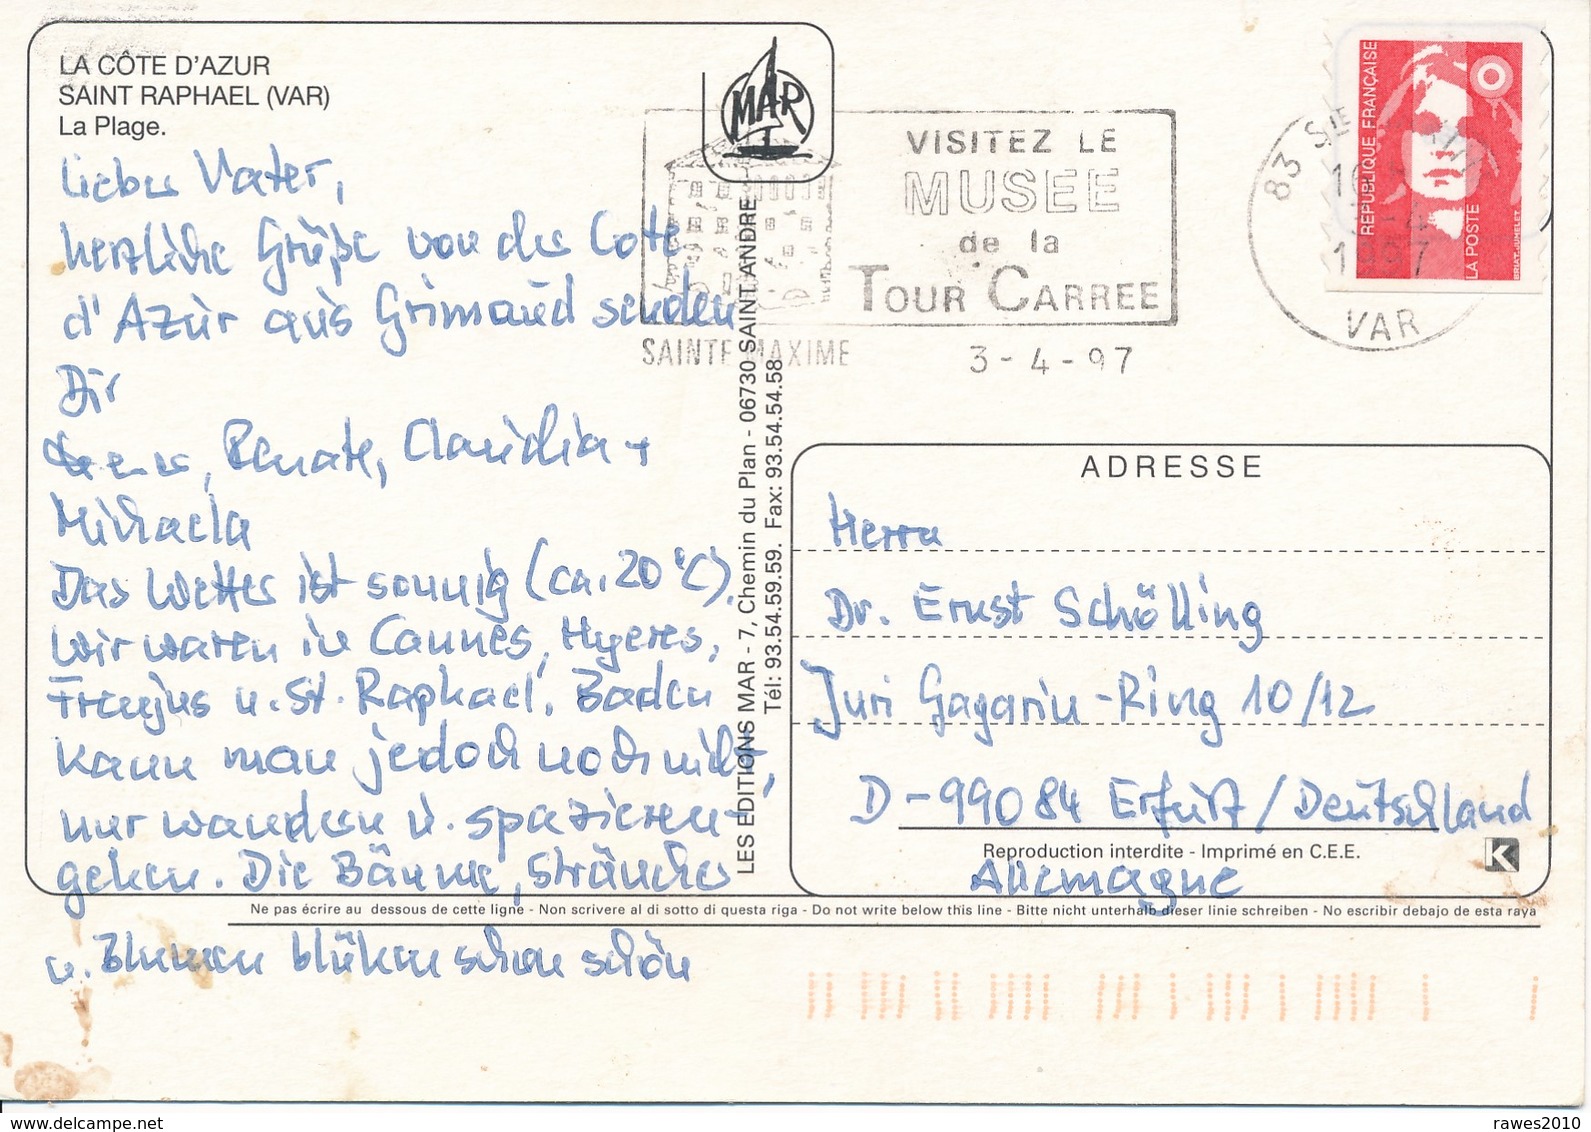 LA CÔTE D'AZUR
SAINT RAPHAEL (VAR)
La Plage.
MAR
Lieber Vater,
herzliche Grüße von der Cote
d'Azur aus Grimaud senden
Dir
Renate, Claudia +
Michaela
Das Wetter ist sonnig (ca. 20°C).
Wir waren in Cannes, Hyeres,
Frejus u. St. Raphael. Baden
kann man jedoch noch nicht,
nur wandern u. spazieren-
gehen. Die Bäume, Sträucher
u. Blumen blühen schon schön
LES EDITIONS MAR - 7, Chemin du Plan - 06730 SAINT ANDRE
Tél: 93.54.59.59. Fax: 93.54.54.58
VISITEZ LE
MUSEE
de la
TOUR CARREE
SAINTE MAXIME
3-4-97
83 STE
1997
VAR
REPUBLIQUE FRANÇAISE
LA POSTE
BRIAT-JUMELET
ADRESSE
Herrn
Dr. Ernst Schölling
Juri Gagarin-Ring 10/12
D-99084 Erfurt/Deutschland
Reproduction interdite - Imprimé en C.E.E.
K
Allemagne
Ne pas écrire au dessous de cette ligne - Non scrivere al di sotto di questa riga - Do not write below this line - Bitte nicht unterhalb dieser linie schreiben - No escribir debajo de esta raya
www.delcampe.net
rawes2010